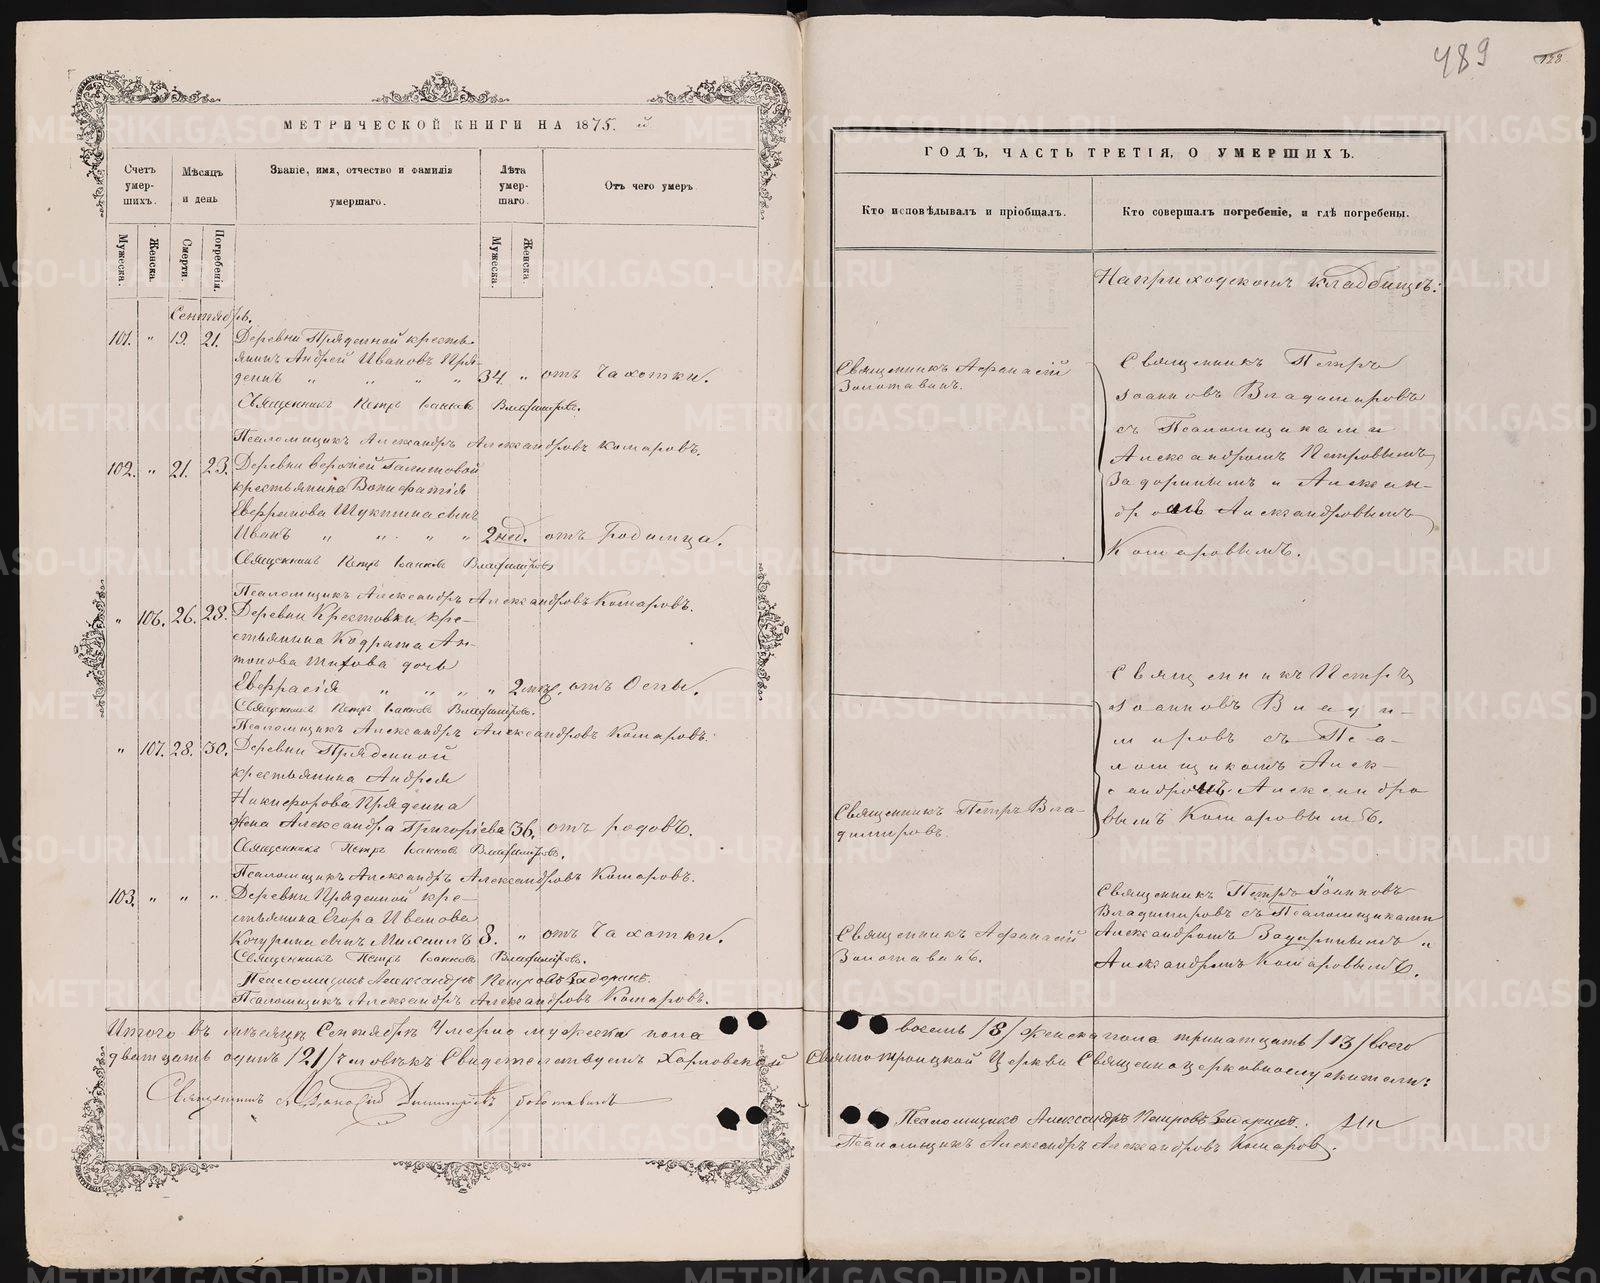 489
128
МЕТРИЧЕСКОЙ КНИГИ НА 1875. й
Счетъ умер- шихъ.
Мѣсяцъ и день
Званіе, имя, отчество и фамилія умершаго.
Лѣта умер- шаго.
Отъ чего умеръ
Мужеска.
Женска.
Смерти.
Погребенія.
Мужеска.
Женска.
Сентябрь.
101. " 19. 21. Деревни Пряденной кресть-
янинъ Андрей Ивановъ Пря-
деинъ " " " " 34. " отъ Чахотки.
Священникъ Петръ Іоанновъ Владимировъ.
Псаломщикъ Александръ Александровъ Комаровъ.
102. " 21. 23. Деревни верхней
крестьянина Вонифатія
сынъ
Иванъ " " " " 2 нед. отъ Родимца.
Священникъ Петръ Іоанновъ Владимировъ
Псаломщикъ Александръ Александровъ Комаровъ.
" 106. 26. 28. Деревни Крестовки кре-
стьянина Кодрата Ан-
тонова Титова дочь
Евфрасія " " " " 2 отъ Оспы.
Священникъ Петръ Іоанновъ Владимировъ.
Псаломщикъ Александръ Александровъ Комаровъ.
" 107. 28. 30. Деревни Пряденной
крестьянина Андрея
Никифорова Прядеина
жена Александра Григоріева 36. отъ родовъ.
Священникъ Петръ Іоанновъ Владимировъ.
Псаломщикъ Александръ Александровъ Комаровъ.
103. " " " Деревни Пряденной кре-
стьянина Егора Иванова
Кочурина сынъ Михаилъ 8. " отъ Чахотки.
Священникъ Петръ Іоанновъ Владимировъ.
Псаломщикъ Александръ Петровъ Задоринъ.
Псаломщикъ Александръ Александровъ Комаровъ.
Итого въ мѣсяцѣ Сентябрѣ Умерло мужеска пола
двадцать одинъ /21/ человѣкъ Свидетельствуемъ Харловской
Священникъ Димитріевъ Золотавинъ
ГОДЪ, ЧАСТЬ ТРЕТІЯ, О УМЕРШИХЪ.
Кто исповѣдывалъ и пріобщалъ.
Кто совершалъ погребеніе, и гдѣ погребены.
На приходскомъ кладбищѣ:
Священникъ Афанасій
Золотавинъ.
Священникъ Петръ
Іоанновъ Владимировъ
съ Псаломщиками
Александромъ Петровымъ
Задоринымъ и Алексан-
дромъ Александровымъ
Комаровымъ.
Священникъ Петръ
Іоанновъ Влади-
мировъ съ Пса-
ломщикомъ Алек-
сандромъ Александро
вымъ Комаровымъ.
Священникъ Петръ Вла-
димировъ.
Священникъ Петръ Іоанновъ
Владимировъ съ Псаломщиками
Александромъ Задоринымъ и
Александромъ Комаровымъ.
Священникъ Афанасій
Золотавинъ.
восемь /8/ женска пола тринатцать /13/ всего
Святотроицкой Церкви Священноцерковнослужители:
Псаломщикъ Александръ Петровъ Задоринъ.
Псаломщикъ Александръ Александровъ Комаровъ.
METRIKI.GASO-URAL.RU